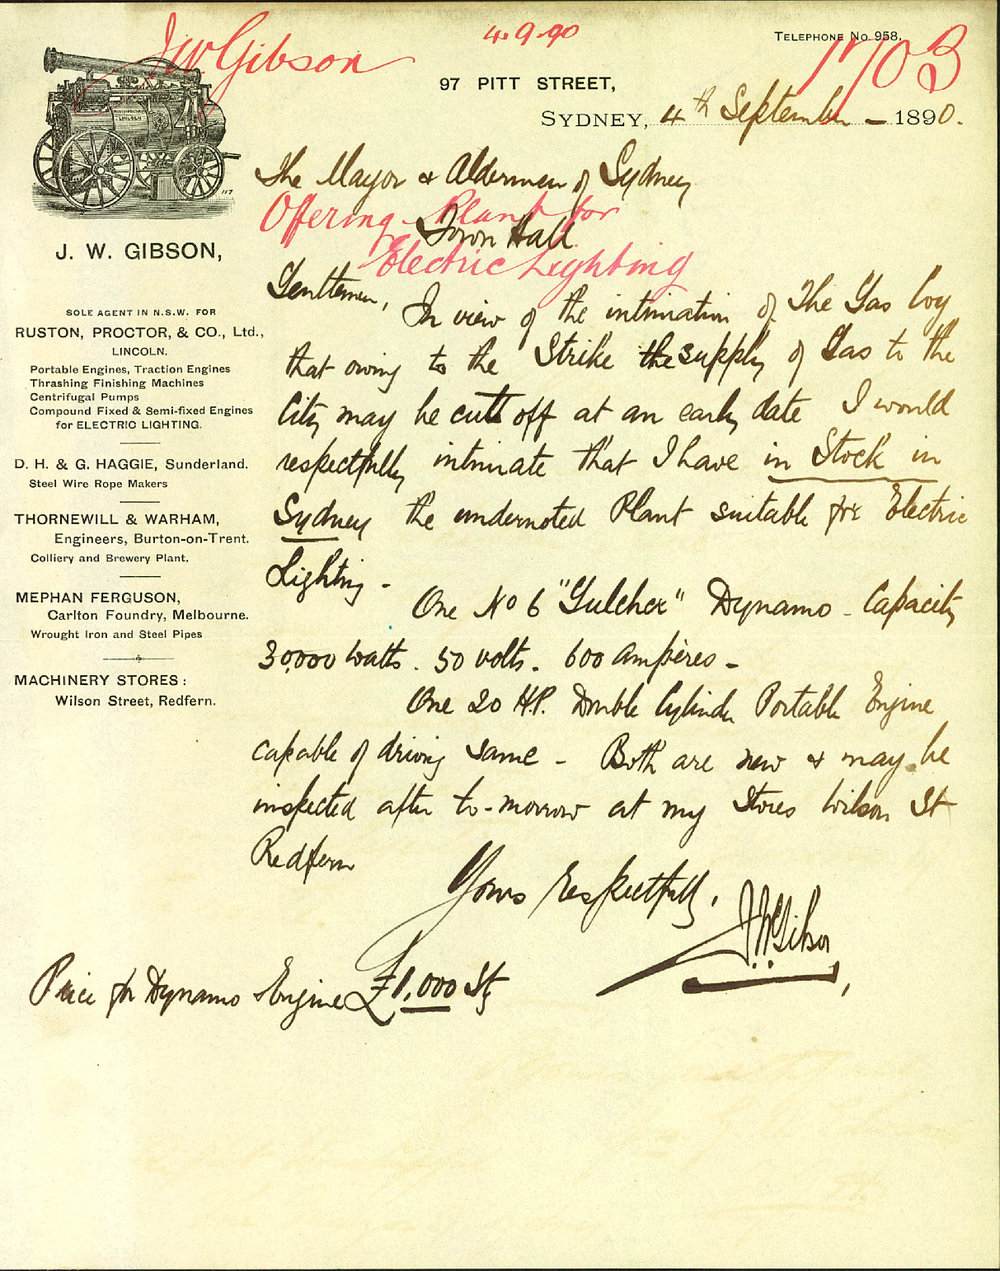 J W Gibson
4.9.90
1703
TELEPHONE NO 958.
97 PITT STREET,
SYDNEY, 4th September - 1890.
The Mayor & Aldermen of Sydney
Offering Plant for
Town Hall
Electric Lighting
Gentlemen,
In view of the intimation of The Gas Coy
that owing to the Strike the supply of Gas to the
City may be cutt off at an early date I would
respectfully intimate that I have in Stock in
Sydney the undernoted Plant suitable for Electric
Lighting -
One No 6 "Gulcher" Dynamo - Capacity
30,000 Watts. 50 volts. 600 Ampères -
One 20 H.P. Double Cylinder Portable Engine
capable of driving same - Both are new & may be
inspected after to-morrow at my Stores Wilson St
Redfern
Yours respectfully,
J. W. Gibson,
Price for Dynamo & Engine £1,000 Stg
117
J. W. GIBSON,
SOLE AGENT IN N.S.W. FOR
RUSTON, PROCTOR, & CO., Ltd.,
LINCOLN.
Portable Engines, Traction Engines
Thrashing Finishing Machines
Centrifugal Pumps
Compound Fixed & Semi-fixed Engines
for ELECTRIC LIGHTING.
D. H. & G. HAGGIE, Sunderland.
Steel Wire Rope Makers
THORNEWILL & WARHAM,
Engineers, Burton-on-Trent.
Colliery and Brewery Plant.
MEPHAN FERGUSON,
Carlton Foundry, Melbourne.
Wrought Iron and Steel Pipes
MACHINERY STORES:
Wilson Street, Redfern.